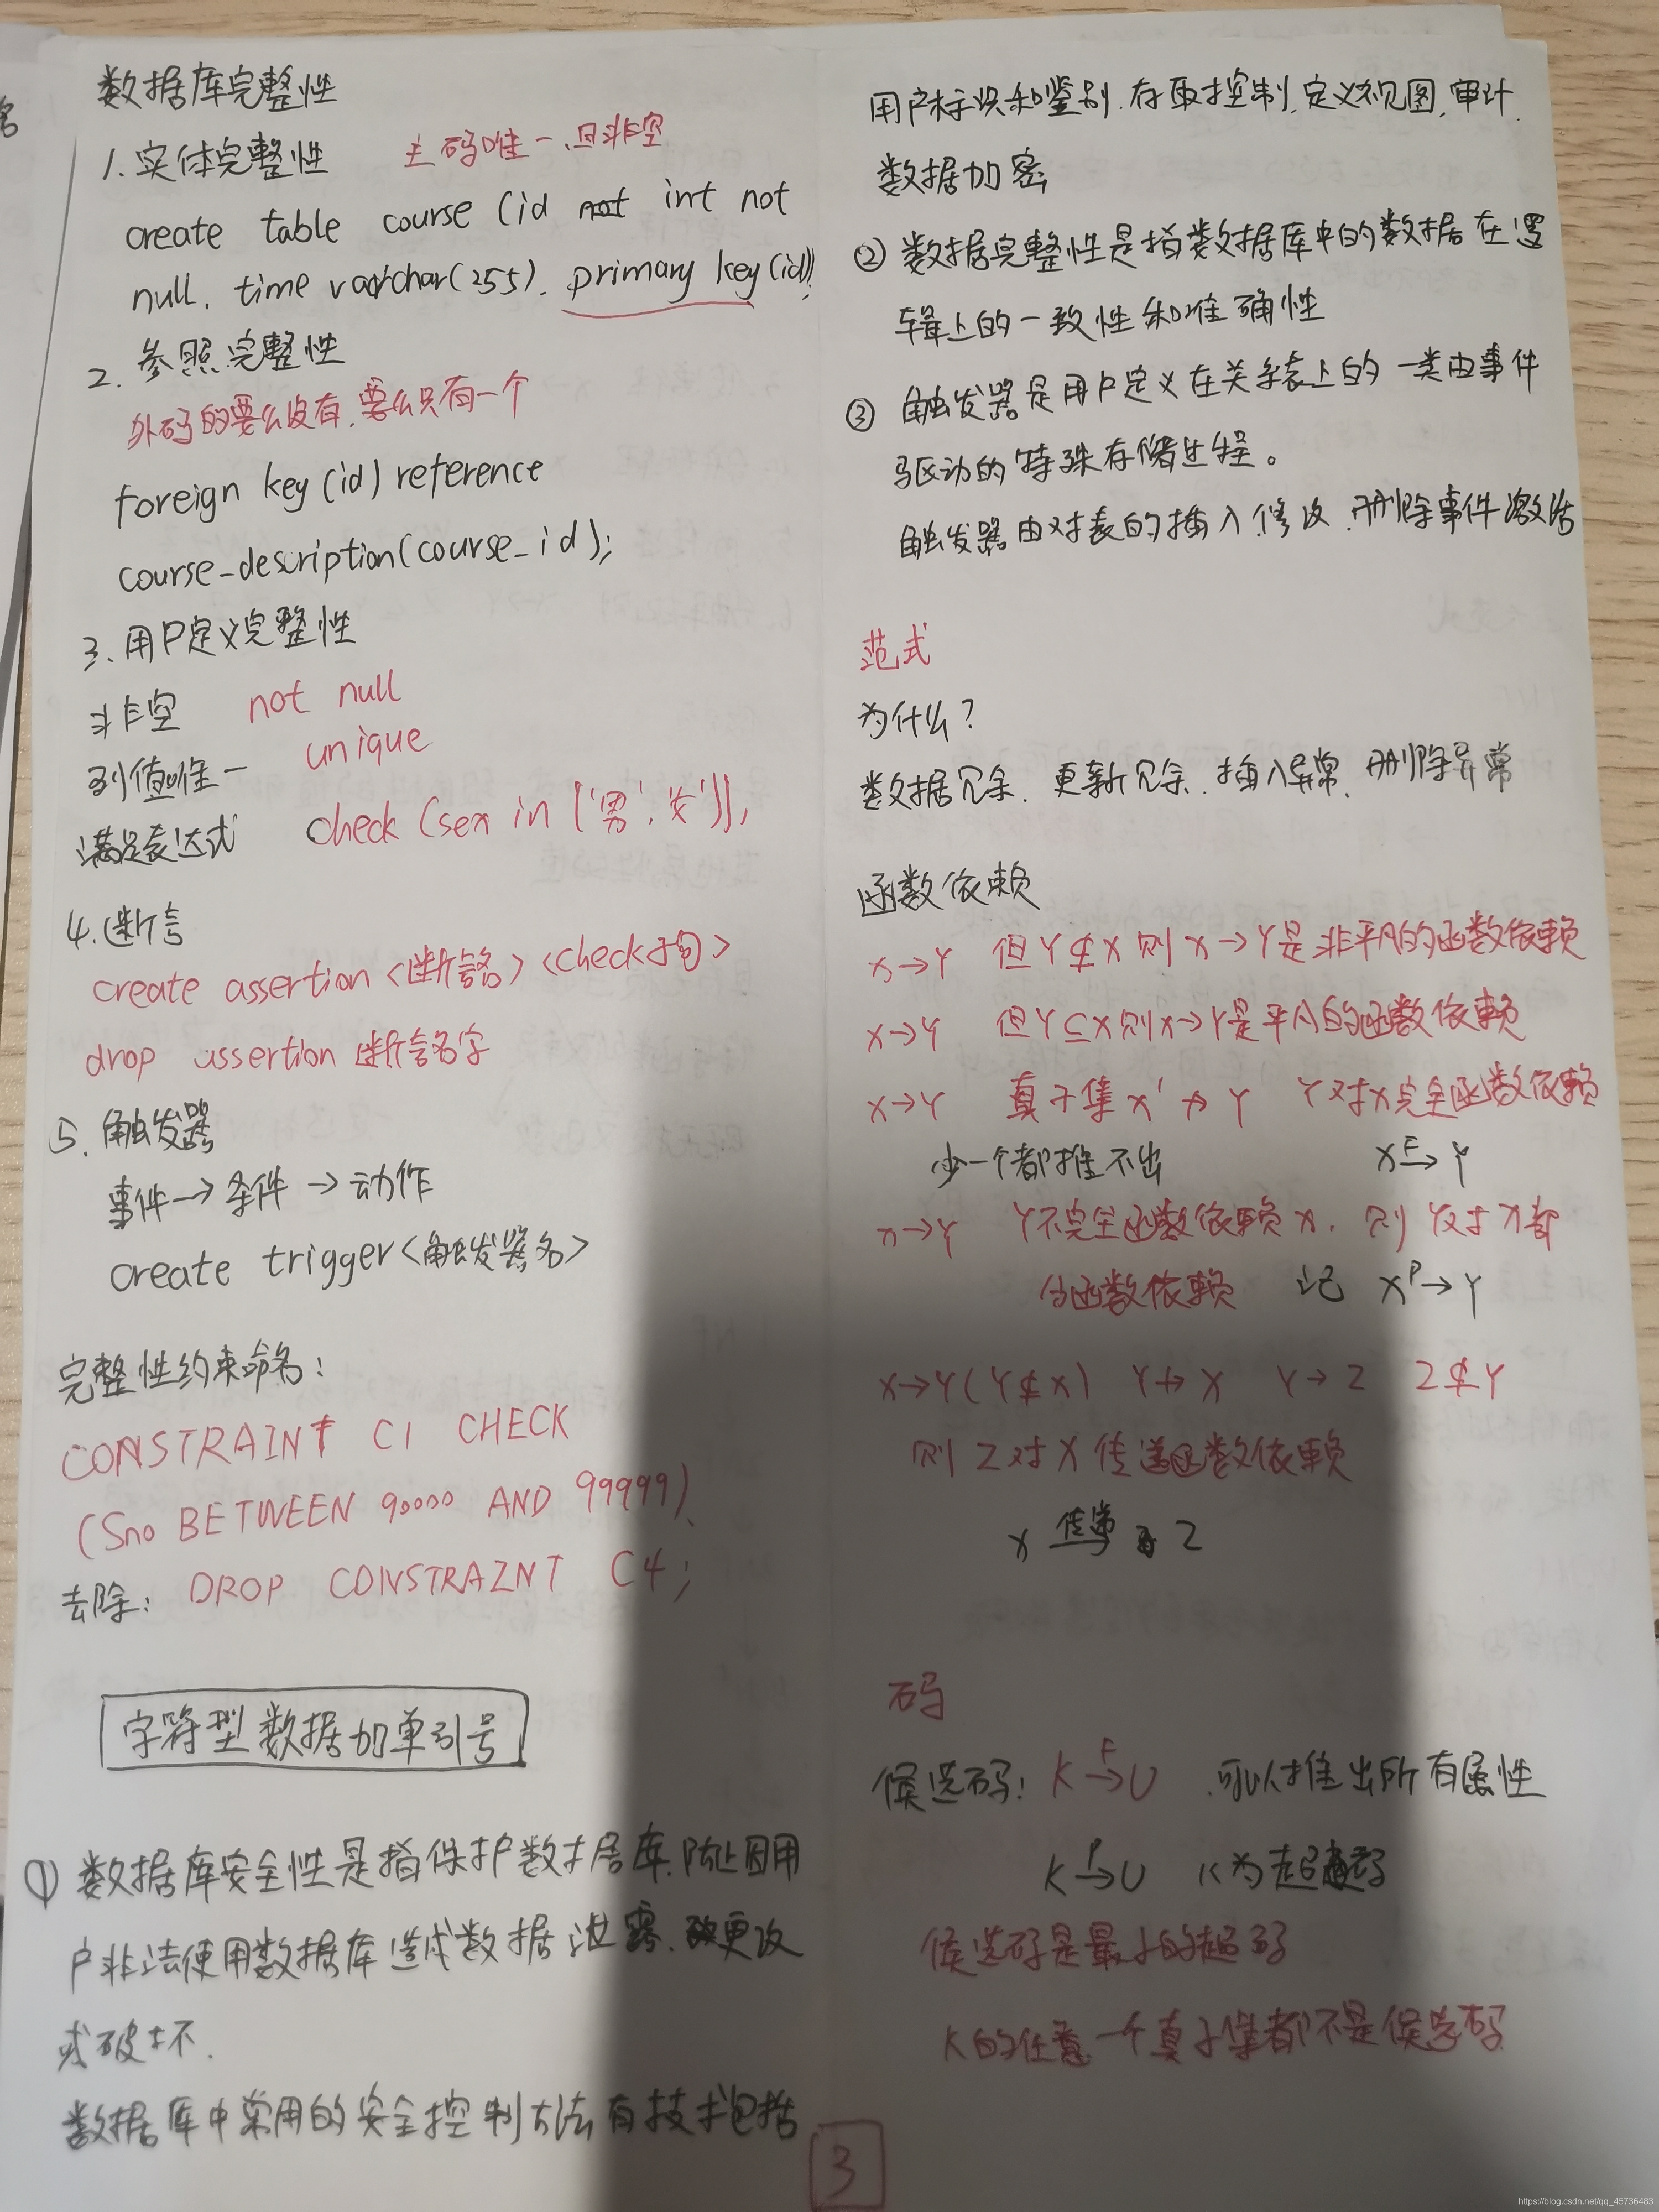 数据库完整性
1. 实体完整性 主码唯一、且非空
create table course (id int not
null, time varchar(255), primary key(id));
2. 参照完整性
外码的要么没有,要么只有一个
foreign key(id) reference
course_description(course_id);
3. 用户定义完整性
非空 not null
列值唯一 unique
满足表达式 check (sex in ['男','女']),
4. 断言
create assertion <断言名> <check子句>
drop assertion 断言名字
5. 触发器
事件→条件→动作
create trigger<触发器名>
完整性约束命名:
CONSTRAINT C1 CHECK
(Sno BETWEEN 90000 AND 99999)、
去除: DROP CONSTRAINT C4;
字符型数据加单引号
① 数据库安全性是指保护数据库,防止因用
户非法使用数据库造成数据泄露、更改
或破坏.
数据库中常用的安全控制方法有技术包括
用户标识和鉴别.存取控制.定义视图.审计.
数据加密
② 数据完整性是指数据库中的数据在逻
辑上的一致性和准确性
③ 触发器是用户定义在关系表上的一类由事件
驱动的特殊存储过程。
触发器由对表的插入.修改.删除事件激活
范式
为什么?
数据冗余.更新冗余.插入异常.删除异常
函数依赖
X→Y 但Y⊄X则X→Y是非平凡的函数依赖
X→Y 但Y⊆X则X→Y是平凡的函数依赖
X→Y 真子集X'↛Y Y对X完全函数依赖
少一个都推不出 X F→ Y
X→Y Y不完全函数依赖X.则Y对X部
分函数依赖 记 X P→ Y
X→Y(Y⊄X) Y↛X Y→Z Z⊄Y
则Z对X传递函数依赖
X 传递→ Z
码
候选码: K F→ U .可以推出所有属性
K P→ U K为超码
候选码是最小的超码
K的任意一个真子集都不是候选码
3
https://blog.csdn.net/qq_45736483